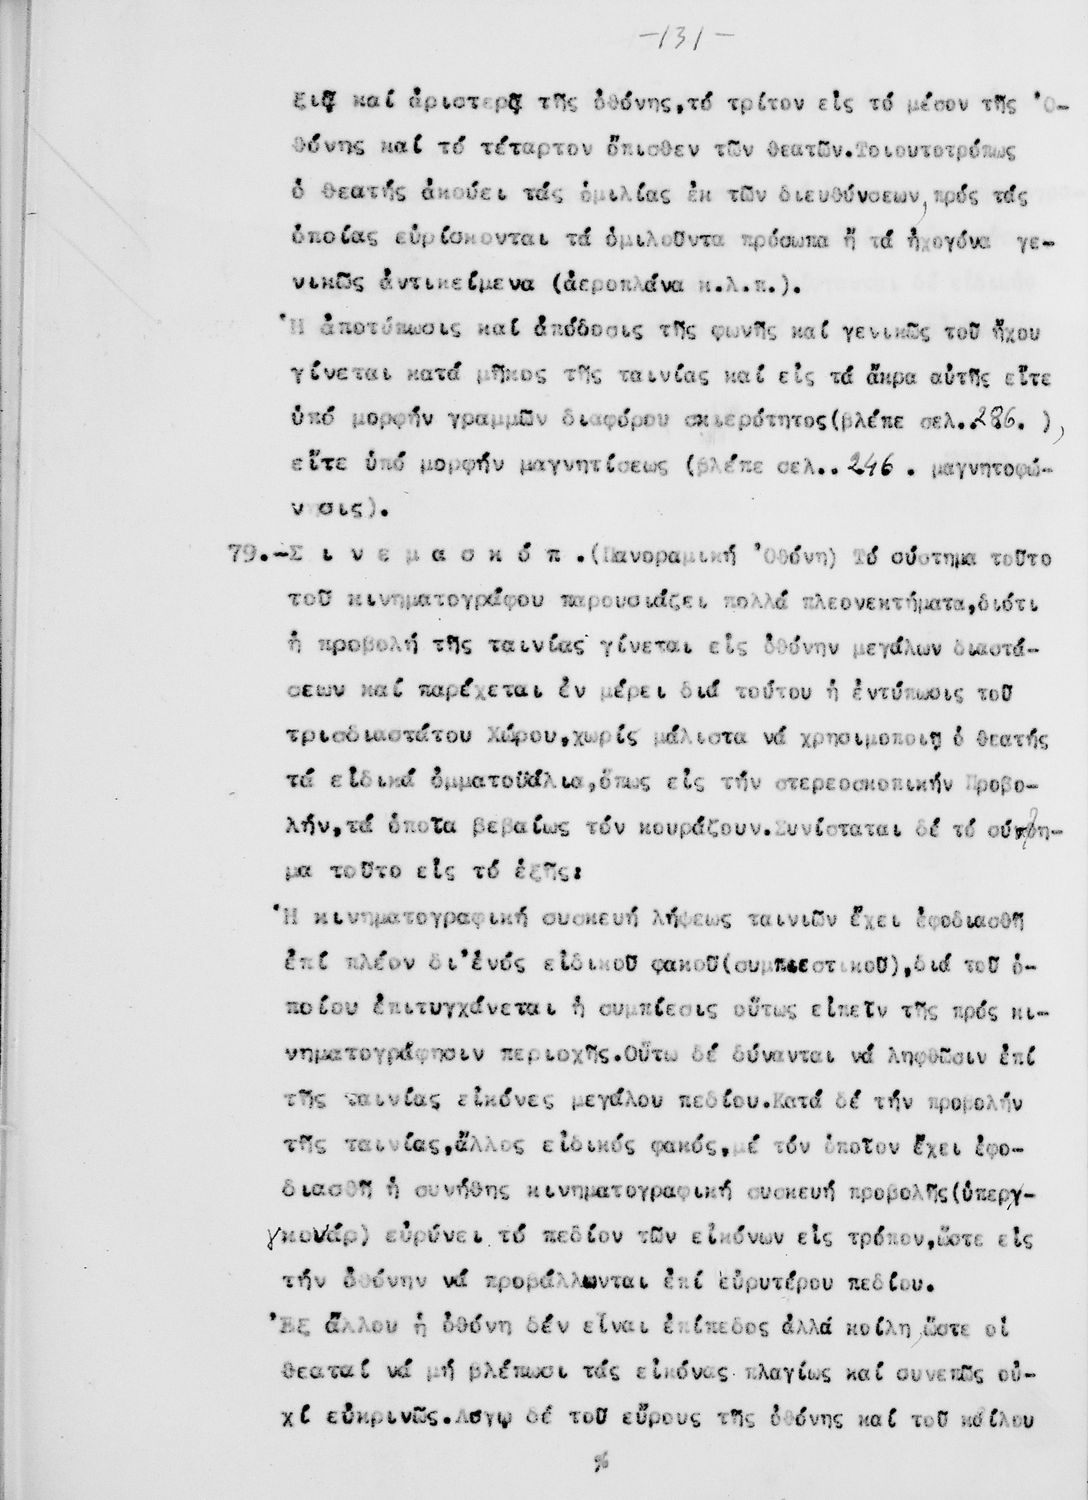 -131-
ξιᾷ καί ἀριστερᾷ τῆς ὀθόνης,τό τρίτον εἰς τό μέσον τῆς Ὀ-
θόνης καί τό τέταρτον ὄπισθεν τῶν θεατῶν.Τοιουτοτρόπως
ὁ θεατής ἀκούει τάς ὁμιλίας ἐκ τῶν διευθύνσεων, πρός τάς
ὁποίας εὑρίσκονται τά ὁμιλοῦντα πρόσωπα ἤ τά ἠχογόνα γε-
νικῶς ἀντικείμενα (ἀεροπλάνα κ.λ.π.).
Ἡ ἀποτύπωσις καί ἀπόδοσις τῆς φωνῆς καί γενικῶς τοῦ ἤχου
γίνεται κατά μῆκος τῆς ταινίας καί εἰς τά ἄκρα αὐτῆς εἴτε
ὑπό μορφήν γραμμῶν διαφόρου σκιερότητος(βλέπε σελ..286. ),
εἴτε ὑπό μορφήν μαγνητίσεως (βλέπε σελ.. 246 . μαγνητοφώ-
νησις).
79.-Σ ι ν ε μ α σ κ ό π .(Πανοραμική Ὀθόνη) Τό σύστημα τοῦτο
τοῦ κινηματογράφου παρουσιάζει πολλά πλεονεκτήματα,διότι
ἡ προβολή τῆς ταινίας γίνεται εἰς ὀθόνην μεγάλων διαστά-
σεων καί παρέχεται ἐν μέρει διά τούτου ἡ ἐντύπωσις τοῦ
τρισδιαστάτου Χώρου,χωρίς μάλιστα νά χρησιμοποιῇ ὁ θεατής
τά εἰδικά ὀμματοϋάλια,ὅπως εἰς τήν στερεοσκοπικήν Προβο-
λήν,τά ὁποῖα βεβαίως τόν κουράζουν.Συνίσταται δέ τό σύστη-
μα τοῦτο εἰς τό ἑξῆς:
Ἡ κινηματογραφική συσκευή λήψεως ταινιῶν ἔχει ἐφοδιασθῆ
ἐπί πλέον δι'ἑνός εἰδικοῦ φακοῦ(συμπιεστικοῦ),διά τοῦ ὁ-
ποίου ἐπιτυγχάνεται ἡ συμπίεσις οὕτως εἰπεῖν τῆς πρός κι-
νηματογράφησιν περιοχῆς.Οὕτω δέ δύνανται νά ληφθῶσιν ἐπί
τῆς ταινίας εἰκόνες μεγάλου πεδίου.Κατά δέ τήν προβολήν
τῆς ταινίας,ἄλλος εἰδικός φακός,μέ τόν ὁποῖον ἔχει ἐφο-
διασθῆ ἡ συνήθης κινηματογραφική συσκευή προβολῆς(ὑπεργ-
γκονάρ) εὐρύνει τό πεδίον τῶν εἰκόνων εἰς τρόπον,ὥστε εἰς
τήν ὀθόνην νά προβάλλωνται ἐπί εὐρυτέρου πεδίου.
Ἐξ ἄλλου ἡ ὀθόνη δέν εἶναι ἐπίπεδος ἀλλά κοίλη,ὥστε οἱ
θεαταί νά μή βλέπωσι τάς εἰκόνας πλαγίως καί συνεπῶς οὐ-
χί εὐκρινῶς.Λόγῳ δέ τοῦ εὔρους τῆς ὀθόνης καί τοῦ κοίλου